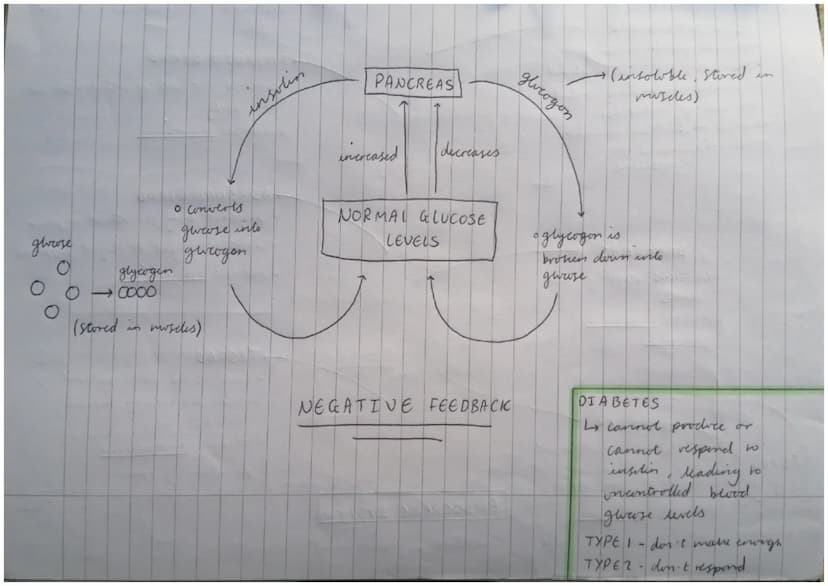 PANCREAS
insulin
glucogon
(insoluble, stored in
muscles)
increased
decreases
NORMAL GLUCOSE
LEVELS
converts
glucose into
glucogon
glucose
glycogen
(stored in muscles)
glycogon is
broken down into
glucose
NEGATIVE FEEDBACK
DIABETES
↳ cannot produce or
cannot respond to
insulin, leading to
uncontrolled blood
glucose levels
TYPE 1 - don't make enough
TYPE 2 - don't respond